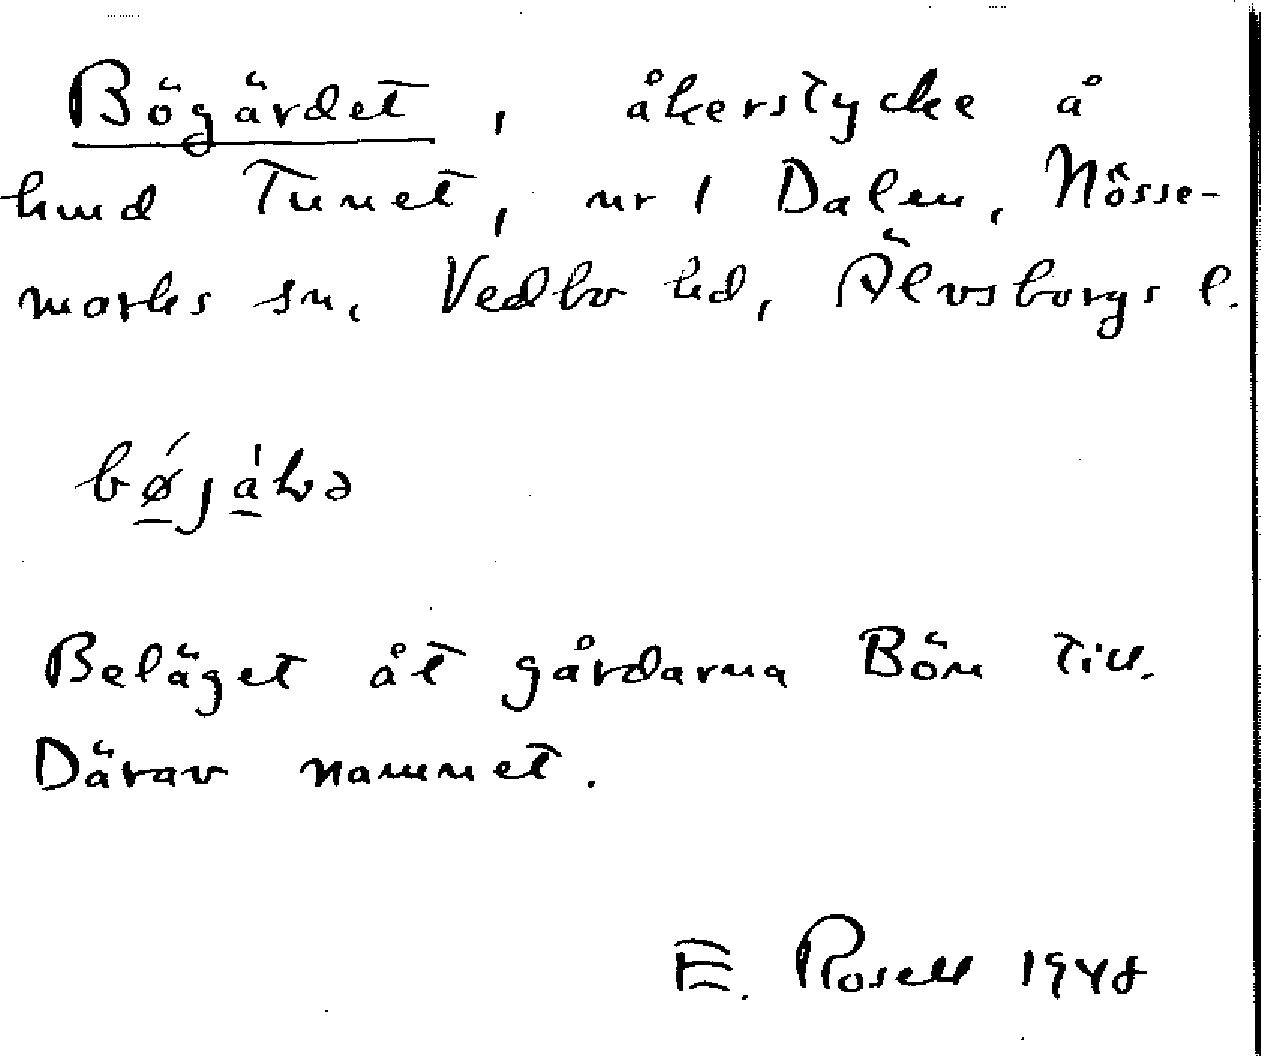 Bögärdet, åkerstycke å
hmd Tunet, nr 1 Dalen, Nösse-
marks sn, Vedbo hd, Älvsborgs l.
Beläget åt gårdarna Bön till.
Därav namnet.
E. Rosell 1948